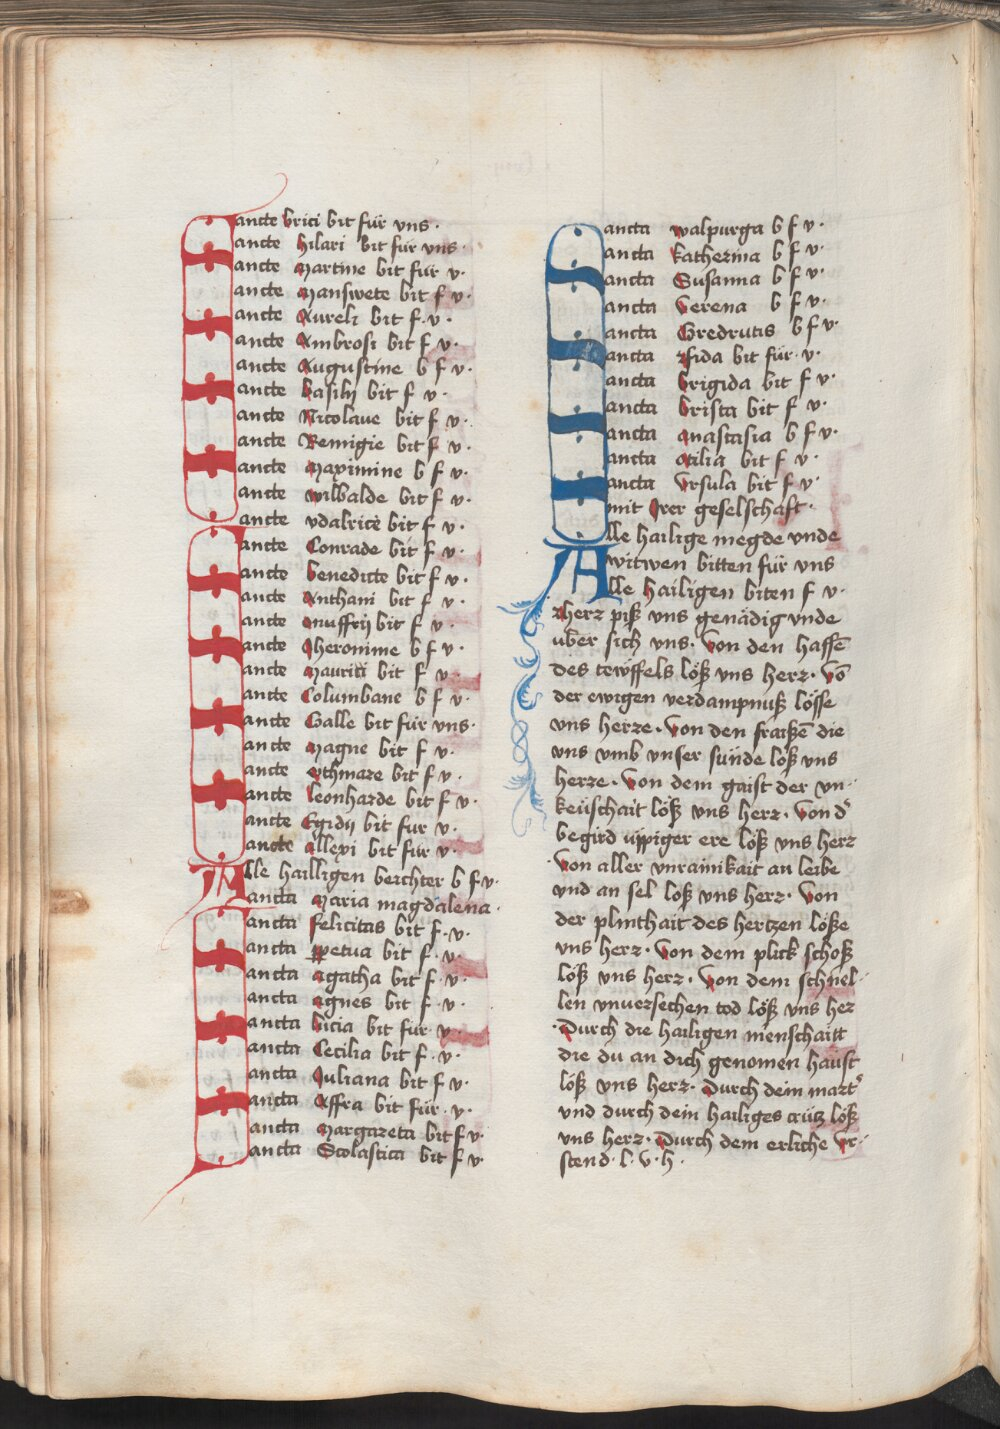 ancte brici bit für vns ·
ancte hilari bit für vns ·
ancte martine bit für v ·
ancte manswete bit f v ·
ancte Aureli bit f · v ·
ancte Ambrosi bit f v ·
ancte Augustine b f v ·
ancte basilij bit f v ·
ancte Nicolaue bit f v ·
ancte Remigie bit f v ·
ancte maximine b f v ·
ancte wilbalde bit f v ·
ancte vdalrice bit f v ·
ancte Conrade bit f v ·
ancte benedicte bit f v ·
ancte Anthani bit f v ·
ancte onuffrij bit f v ·
ancte Jheronime b f v ·
ancte mauricii bit f v ·
ancte Columbane b f v ·
ancte Galle bit für vns ·
ancte magne bit f v ·
ancte othmare bit f v ·
ancte leonharde bit f v ·
ancte Egidij bit fur v ·
ancte allexi bit für v ·
Alle hailligen beichter b f v ·
ancta maria magdalena ·
ancta felicitas bit f · v ·
ancta ꝑpetua bit f · v ·
ancta agatha bit f · v ·
ancta agnes bit f · v ·
ancta lucia bit für · v ·
ancta Cecilia bit f · v ·
ancta Juliana bit f v ·
ancta Affra bit für · v ·
ancta margareta bit f v ·
ancta Scolastica bit f v ·
ancta walpurga b f v ·
ancta katherina b f v ·
ancta Susanna b f v ·
ancta verena b f v ·
ancta Gredrutis b f v ·
ancta fida bit für · v ·
ancta brigida bit f v ·
ancta brista bit f v ·
ancta anastasia b f v ·
ancta otilia bit f v ·
ancta vrsula bit f v ·
mit Jrer geselschaft ·
lle hailige megde vnde
witwen bitten für vns
Alle hailigen biten f v ·
herz piß vns genädig vnde
über sich vns · von den hassē
des tewffels löß vns herz · vō
der ewigen verdampnuß lösse
vns herze · von den fraißē die
vns vmb vnser sünde löß vns
herze · von dem gaist der vn-
keüschait löß vns herz · von dˀ
begird üppiger ere löß vns herz
von aller vnrainikait an leibe
vnd an sel löß vns herz · von
der plinthait des hertzen löße
vns herz · von dem plick schoß
löß vns herz · von dem schnel-
len vnuersechen tod löß vns her
Durch die hailigen menschaitt
die du an dich genomen haust
löß vns herz · durch dein martˀ
vnd durch dein hailiges crütz löß
vns herz · Durch dem erliche vr-
stend · l · v · h ·